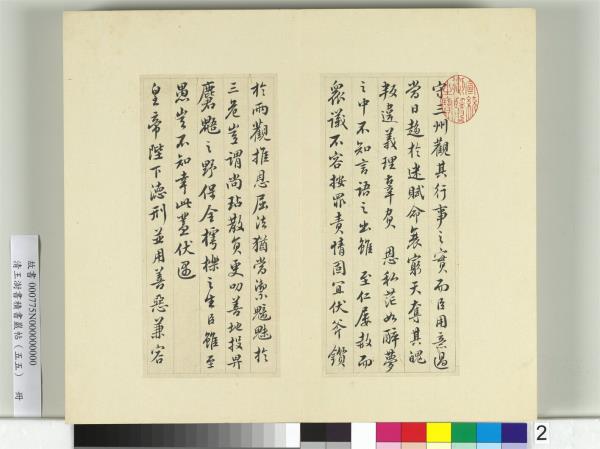 守三州觀其行事之實而臣用意過
當日趨於迷賦命衰窮天奪其魄
叛違義理辜負 恩私茫如醉夢
之中不知言語之出雖 至仁屢赦而
眾議不容按罪責情固宜伏斧鑕
於兩觀推恩屈法猶當禦魑魅於
三危豈謂尚玷散員更叨善地投畀
麏鼯之野保全樗櫟之生臣雖至
愚豈不知幸此蓋伏遇
皇帝陛下德刑並用善惡兼容
故書 000775N000000000
清王澍書積書巖帖(五五) 冊
2